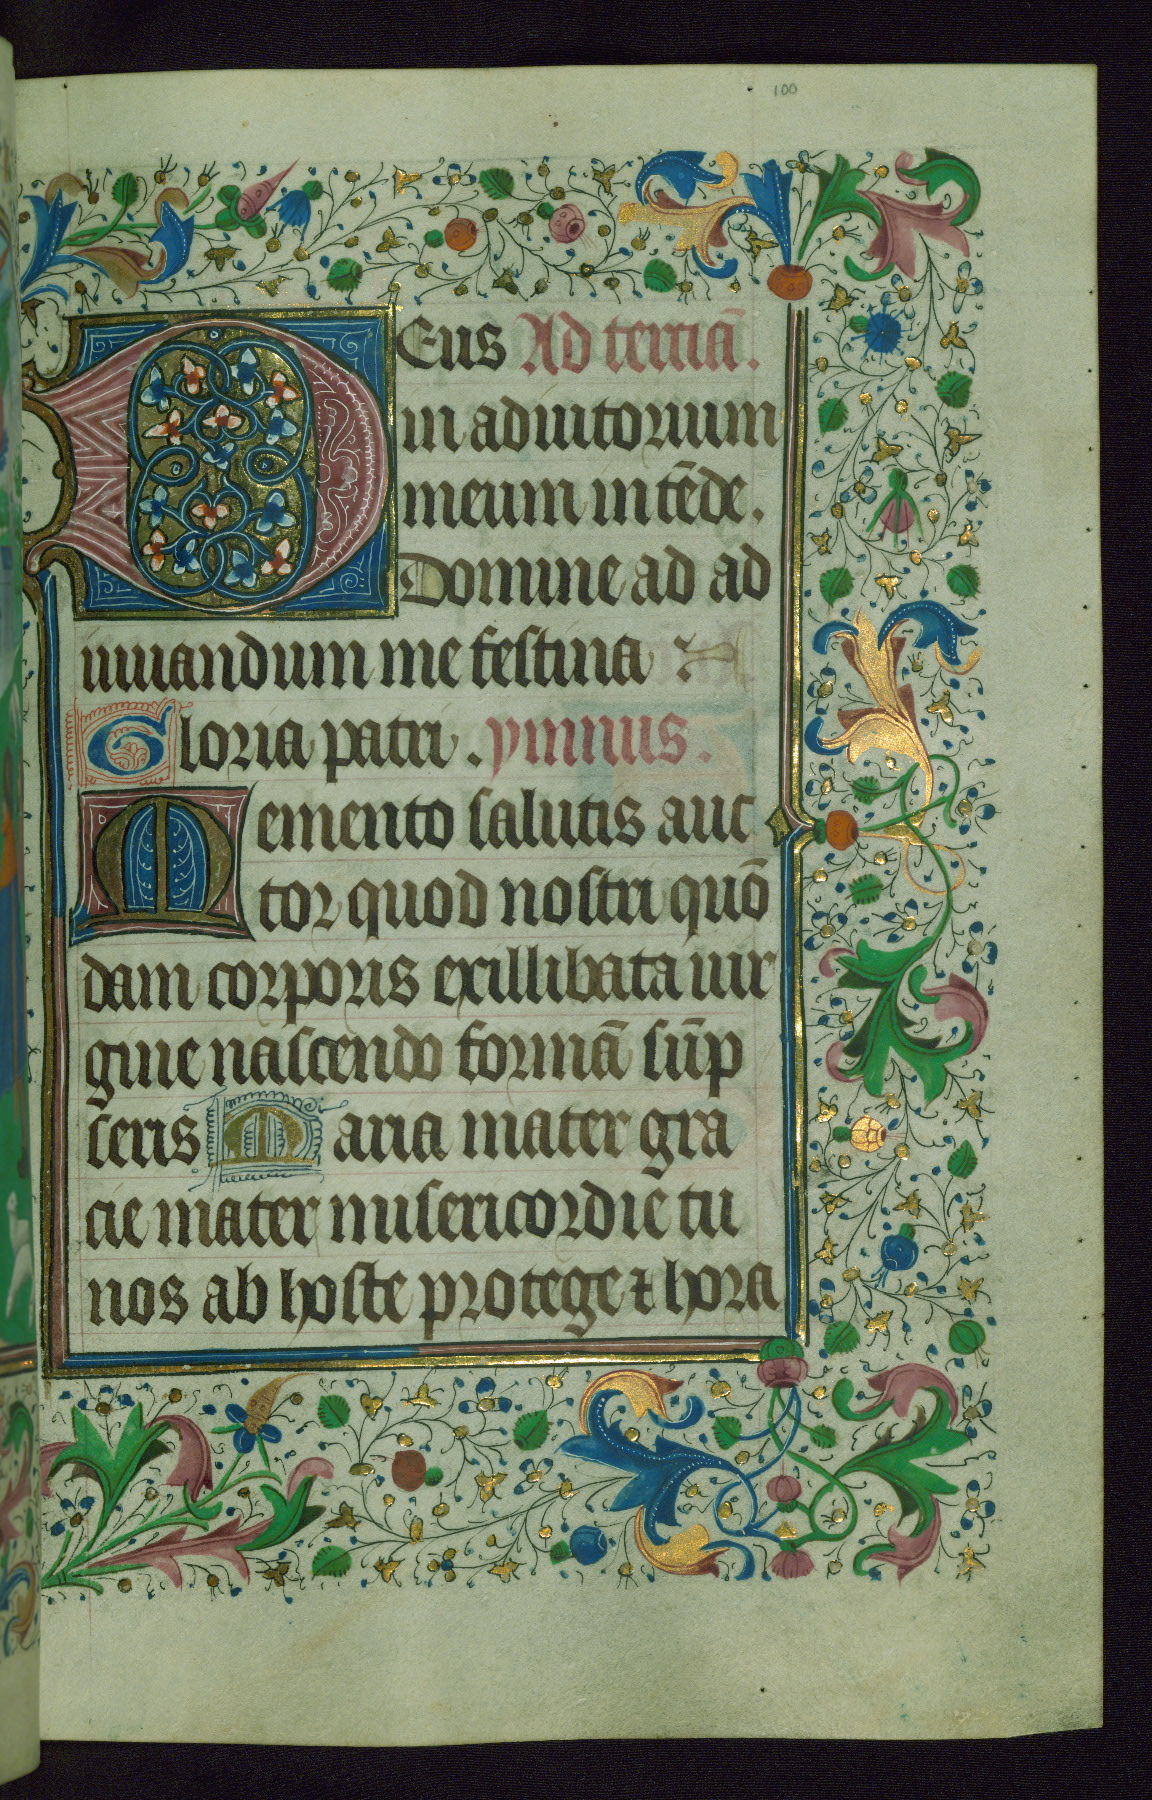 100
DEus Ad terciā.
in adiutorium
meum intēde.
Domine ad ad
iuuandum me festina
Gloria patri. ymnus.
Memento salutis auc
tor quod nostri quō
dam corporis exillibata uir
gine nascendo formā sūp
seris Maria mater gra
cie mater misericordie tu
nos ab hoste protege ⁊ hora